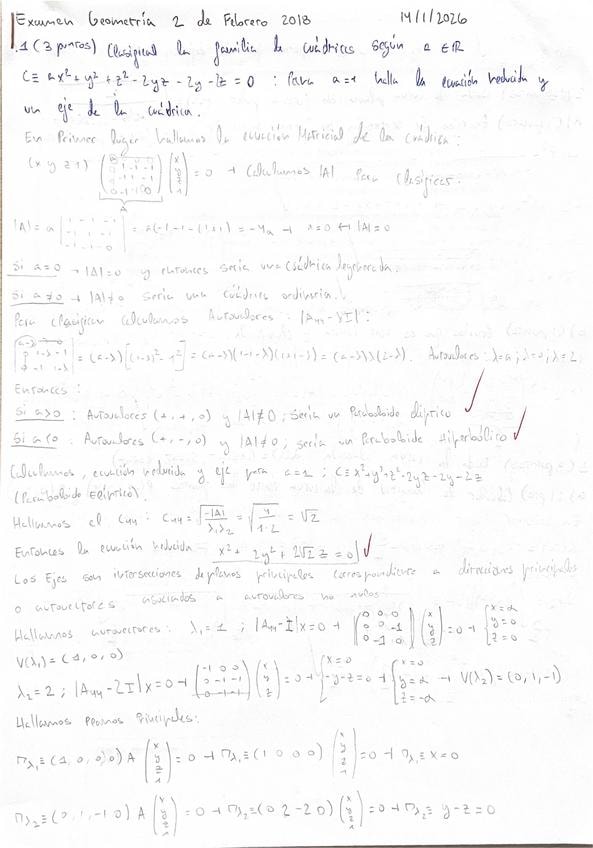 Examen Geometría 2 de Febrero 2018 14/1/2026
1 (3 puntos) Clasificar la familia de cuádricas según a ∈ ℝ
C ≡ ax² + y² + z² - 2yz - 2y - 2z = 0 : Para a=1 halla la ecuación reducida y
un eje de la cuádrica.
En Primer lugar hallamos la ecuación Matricial de la cuádrica:
(x y z 1) (x y z 1) = 0 → Calculamos |A| para clasificar.
A
|A| = a | 1 -1 -1 -1 1 -1 -1 -1 0 | = a(-1-1-(1+1)) = -4a → a=0 ↔ |A|=0
Si a=0 → |A|=0 y entonces sería una cuádrica degenerada.
Si a≠0 → |A|≠0 sería una cuádrica ordinaria.
Para clasificar calculamos Autovalores: |A₄₄-λI|:
| a-λ 0 0 0 1-λ -1 0 -1 1-λ | = (a-λ)[(1-λ)²-1²] = (a-λ)(1-1-λ)(1+1-λ) = (a-λ)λ(2-λ). Autovalores: λ=a; λ=0; λ=2.
Entonces:
Si a>0: Autovalores (+,+,0) y |A|≠0; sería un Paraboloide elíptico
Si a<0: Autovalores (+,-,0) y |A|≠0; sería un Paraboloide Hiperbólico
Calculamos, ecuación reducida y eje para a=1; C≡x²+y²+z²-2yz-2y-2z
(Paraboloide Elíptico).
Hallamos el C₄₄: C₄₄ = √(-|A|/λ₁λ₂) = √(4/1·2) = √2
Entonces la ecuación reducida x² + 2y² + 2√2 z = 0
Los Ejes son intersecciones de planos principales correspondiente a direcciones principales
o autovectores asociados a autovalores no nulos.
Hallamos autovectores: λ₁=1; |A₄₄-I|x=0 → (0 0 0 0 0 -1 0 -1 0) (x y z) = 0 → {x=α y=0 z=0
V(λ₁) = (1,0,0)
λ₂=2; |A₄₄-2I|x=0 → (-1 0 0 0 -1 -1 0 -1 -1) (x y z) = 0 → {x=0 -y-z=0 → {x=0 y=α z=-α → V(λ₂)=(0,1,-1)
Hallamos Planos Principales:
Πλ₁≡(1,0,0,0) A (x y z 1) = 0 → Πλ₁≡(1 0 0 0) (x y z 1) = 0 → Πλ₁≡ x=0
Πλ₂≡(0,1,-1 0) A (x y z 1) = 0 → Πλ₂≡(0 2 -2 0) (x y z 1) = 0 → Πλ₂≡ y-z=0